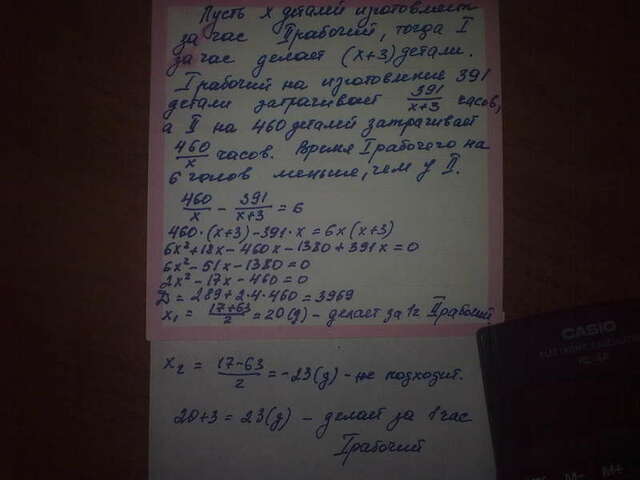 Пусть x деталей изготовляет
за час II рабочий, тогда I
за час делает (x+3) детали.
I рабочий на изготовление 391
детали затрачивает 391/(x+3) часов,
а II на 460 деталей затрачивает
460/x часов. Время I рабочего на
6 часов меньше, чем у II.
460/x - 391/(x+3) = 6
460·(x+3)-391·x = 6x(x+3)
6x²+18x-460x-1380+391x=0
6x²-51x-1380=0
2x²-17x-460=0
D=289+2·4·460=3969
x₁ = (17+63)/2 = 20(д) - делает за 1ч II рабочий
x₂ = (17-63)/2 = -23(д) - не подходит.
20+3 = 23(д) - делает за 1 час
I рабочий
CASIO
M- M+